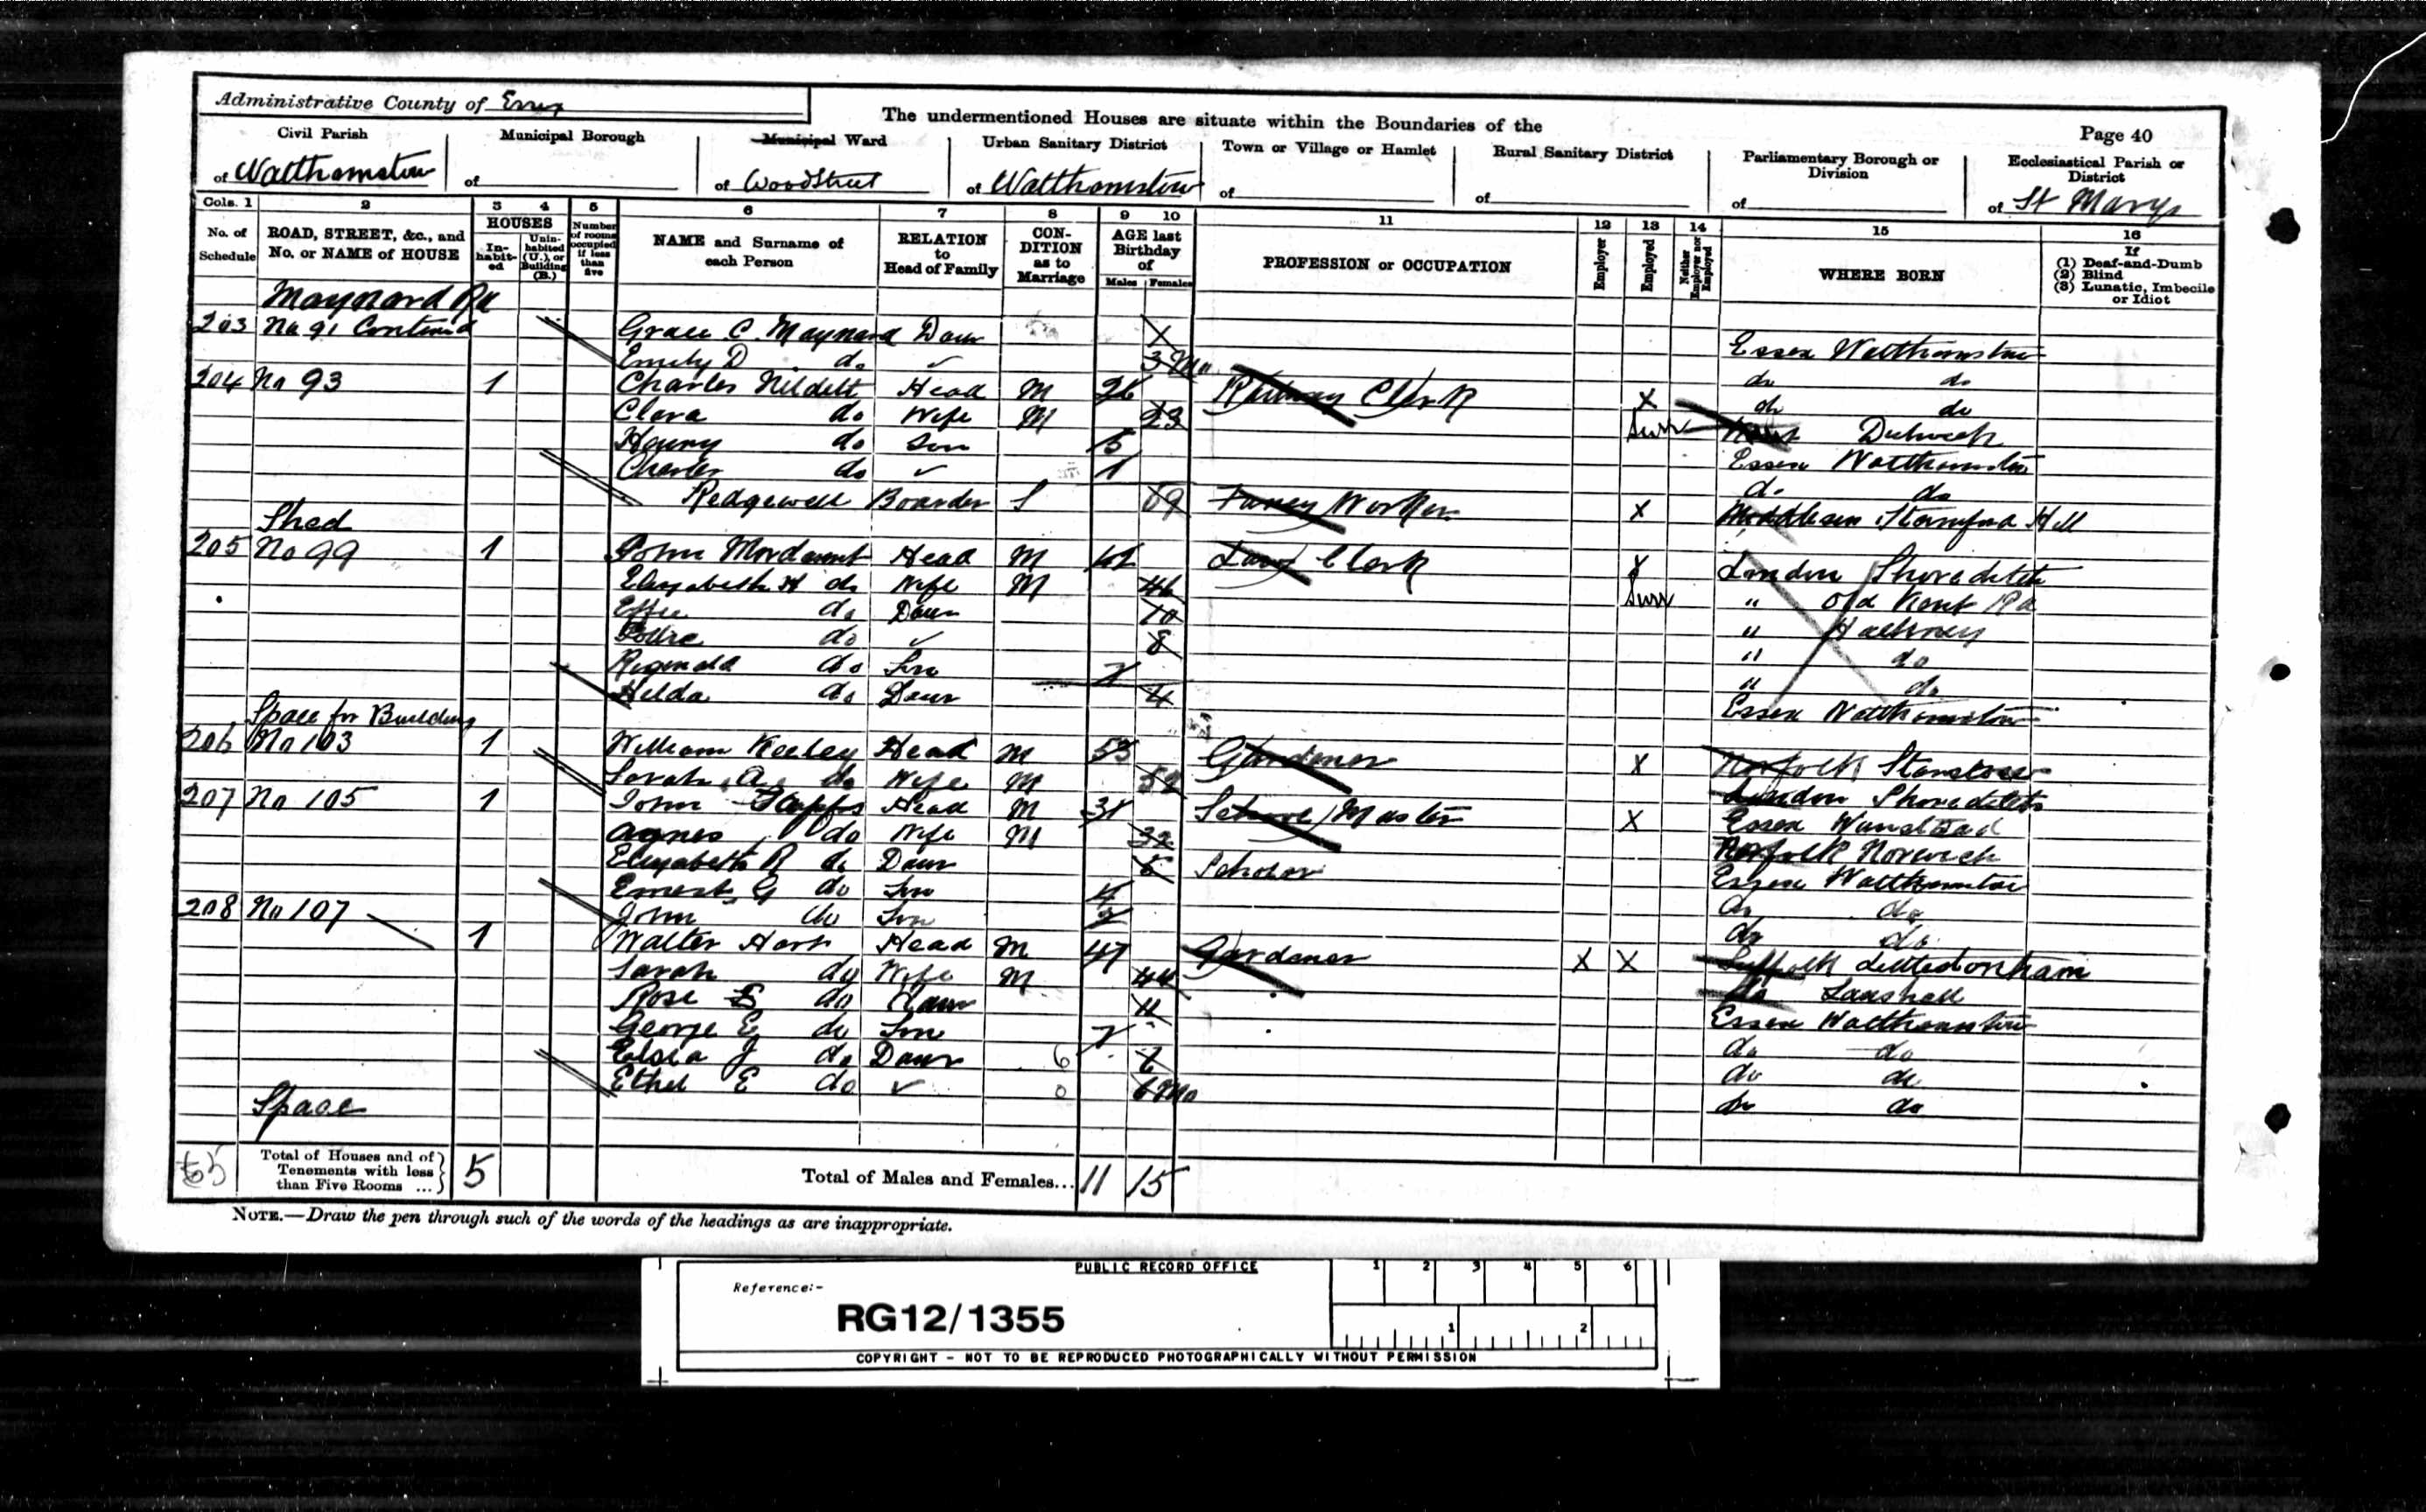 Administrative County of Essex
The undermentioned Houses are situate within the Boundaries of the
Page 40
Civil Parish
of Walthamstow
Municipal Borough
of
Municipal Ward
of Wood Street
Urban Sanitary District
of Walthamstow
Town or Village or Hamlet
of
Rural Sanitary District
of
Parliamentary Borough or Division
of
Ecclesiastical Parish or District
of St Marys
Cols. 1 2 3 4 5 6 7 8 9 10 11 12 13 14 15 16
No. of Schedule
ROAD, STREET, &c., and No. or NAME of HOUSE
HOUSES
In-habit-ed
Unin-habited (U.), or Building (B.)
Number of rooms occupied if less than five
NAME and Surname of each Person
RELATION to Head of Family
CON-DITION as to Marriage
AGE last Birthday of
Males Females
PROFESSION or OCCUPATION
Employer
Employed
Neither Employer nor Employed
WHERE BORN
If
(1) Deaf-and-Dumb
(2) Blind
(3) Lunatic, Imbecile or Idiot
Maynard Rd
203 No 91 Contind Grace C. Maynard Daur Essex Walthamstow
Emily D do ✓ 3 Mo do do
204 No 93 1 Charles Head M 26 Railway Clerk X do do
Clara do Wife M 23 Surr Dulwich
Henry do Son 5 Essex Walthamstow
Charles do ✓ 1 do do
Redgewell Boarder S 69 Fancy Worker X Middlesex Stamford Hill
Shed
205 No 99 1 John Mordaunt Head M 42 Law Clerk X London Shoreditch
Elizabeth H do Wife M 46 Surr " Old Kent Rd
Effie do Daur 10 " Hackney
do ✓ 8 " do
Reginald do Son 7 " do
Hilda do Daur 4 Essex Walthamstow
Space for Building
206 No 103 1 William Keeley Head M 53 Gardener X Norfolk
Sarah A. do Wife M 52 London Shoreditch
207 No 105 1 John Head M 31 School Master X Essex Wanstead
Agnes do Wife M 32 Norfolk Norwich
Elizabeth R do Daur 5 Scholar Essex Walthamstow
Ernest G do Son 4 do do
John do Son 2 do do
208 No 107 1 Walter Hart Head M 47 Gardener X X Suffolk
Sarah do Wife M 44 do Laxshall
Rose E do Daur 11 Essex Walthamstow
George E do Son 7 do do
Elsia J do Daur 6 do do
Ethel E do ✓ 0 6 Mo do do
Space
65
Total of Houses and of Tenements with less than Five Rooms ... 5
Total of Males and Females... 11 15
NOTE.—Draw the pen through such of the words of the headings as are inappropriate.
PUBLIC RECORD OFFICE
1 2 3 4 5 6
Reference:-
RG12/1355
1 2
COPYRIGHT - NOT TO BE REPRODUCED PHOTOGRAPHICALLY WITHOUT PERMISSION